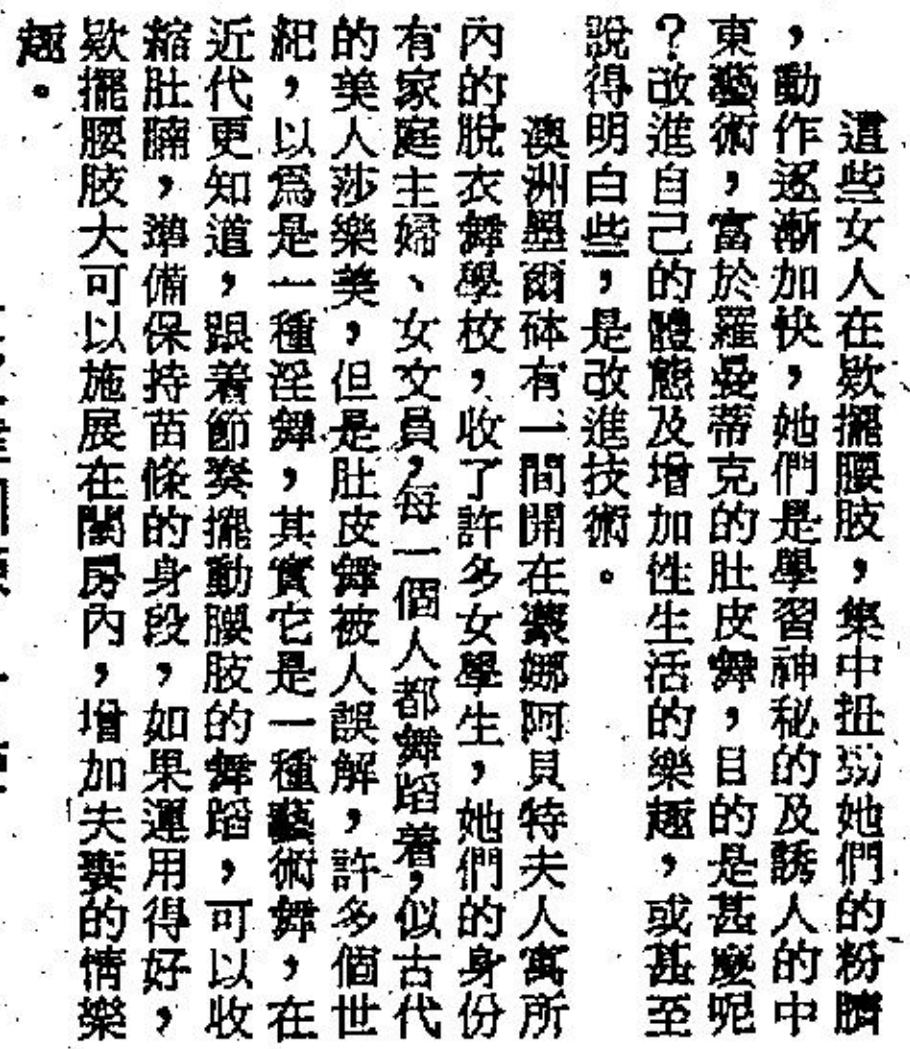 這些女人在欵擺腰肢，集中扭動她們的粉臍
，動作逐漸加快，她們是學習神秘的及誘人的中
東藝術，富於羅曼蒂克的肚皮舞，目的是甚麼呢
？改進自己的體態及增加性生活的樂趣，或甚至
說得明白些，是改進技術。
澳洲墨爾砵有一間開在濛娜阿貝特夫人寓所
內的脫衣舞學校，收了許多女學生，她們的身份
有家庭主婦、女文員，每一個人都舞蹈着，似古代
的美人莎樂美，但是肚皮舞被人誤解，許多個世
紀，以爲是一種淫舞，其實它是一種藝術舞，在
近代更知道，跟着節奏擺動腰肢的舞蹈，可以收
縮肚腩，準備保持苗條的身段，如果運用得好，
欵擺腰肢大可以施展在閨房內，增加夫妻的情樂
趣。